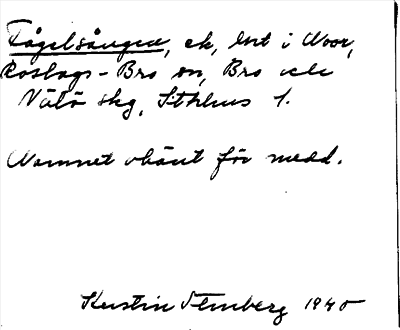 Fågelsången, ek, ent i Noor,
Roslags-Bro sn, Bro och
Vätö skg, Sthlms l.
Namnet okänt för medd.
Kerstin Stenberg 1940